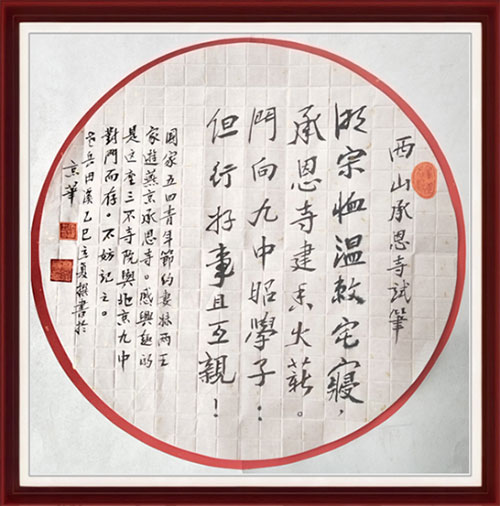 西山承恩寺試筆
明宗恤溫敕宅寢,
承恩寺建香火薪。
門向九中昭學子:
但行好事且互親!
國家五四青年節約妻妹兩王
家遊燕京承恩寺。感興趣的
是這座三不寺院與北京九中
對門而存。不妨記之。
老兵田漢乙巳立夏撰書於
京華